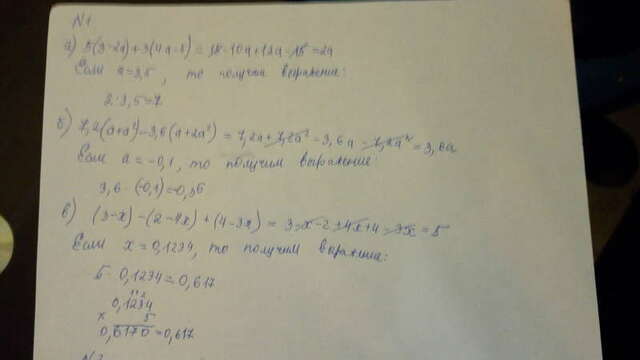 N1
а) 5(3-2a)+3(4a-5) = 15-10a+12a-15 = 2a
Если a=3,5, то получим выражение:
2·3,5=7
б) 7,2(a+a²)-3,6(a+2a²) = 7,2a+7,2a²-3,6a-7,2a² = 3,6a
Если a = -0,1, то получим выражение:
3,6·(-0,1)=-0,36
в) (3-x)-(2-4x)+(4-3x) = 3-x-2+4x+4-3x = 5
Если x = 0,1234, то получим выражение:
5·0,1234=0,617
0,1234
x 5
0,6170=0,617